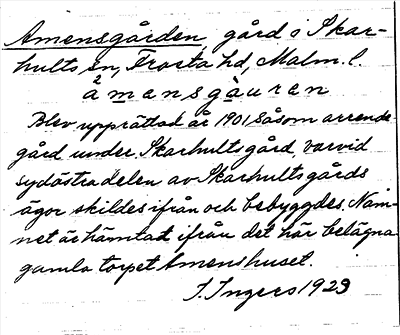 Amensgården gård i Skar-
hults sn, Frosta hd, Malm. l.
åmensgàuren
Blev upprättad år 1901 såsom arrende-
gård under Skarhultsgård, varvid
sydöstra delen av Skarhultsgårds
ägor skildes ifrån och bebyggdes. Nam-
net är hämtat ifrån det här belägna
gamla torpet Amenshuset.
I. Ingers 1929